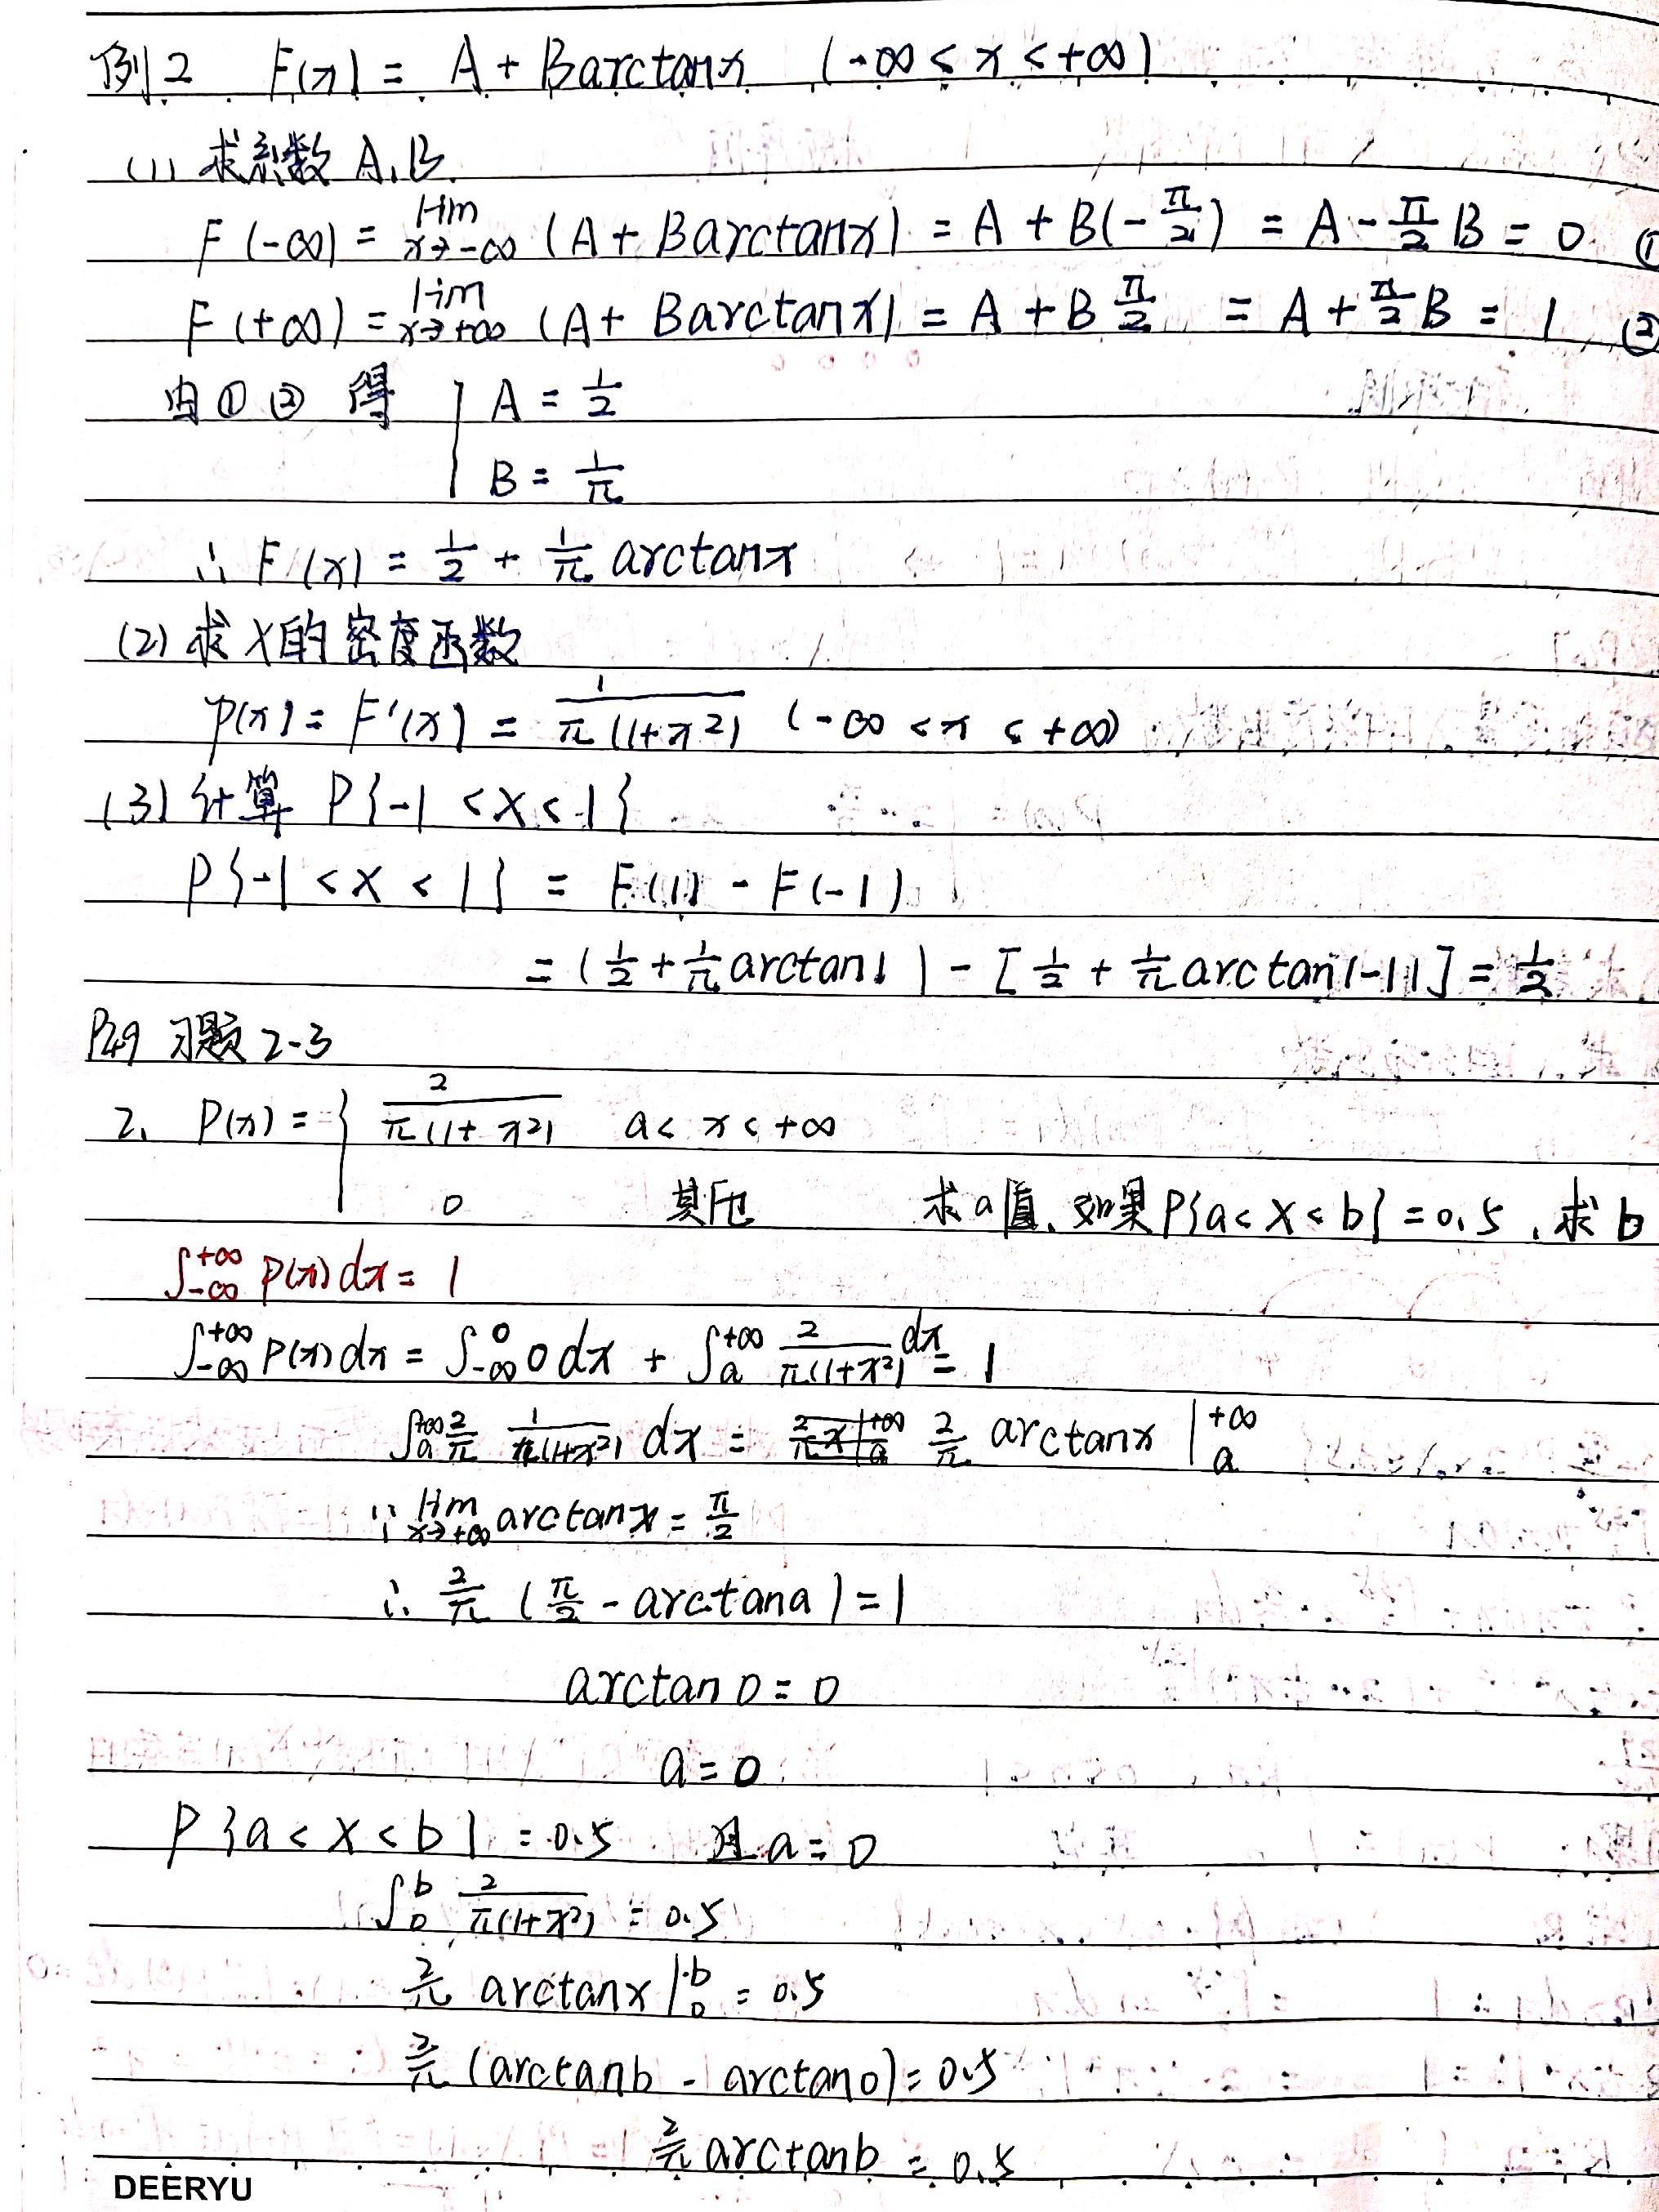 例2 F(x) = A + Barctanx (-∞ < x < +∞)
(1) 求系数 A、B.
F(-∞) = lim x→-∞ (A + Barctanx) = A + B(-π/2) = A - π/2 B = 0 ①
F(+∞) = lim x→+∞ (A + Barctanx) = A + B π/2 = A + π/2 B = 1 ②
由①② 得 { A = 1/2
B = 1/π
∴ F(x) = 1/2 + 1/π arctanx
(2) 求X的密度函数
p(x) = F'(x) = 1/π(1+x²) (-∞ < x < +∞)
(3) 计算 P{-1 < X < 1}
P{-1 < X < 1} = F(1) - F(-1)
= (1/2 + 1/π arctan1) - [1/2 + 1/π arctan(-1)] = 1/2
P49 习题2-3
2. P(x) = { 2/π(1+x²) a < x < +∞
0 其他 求a值、如果P{a < X < b} = 0.5 , 求b
∫-∞^+∞ P(x)dx = 1
∫-∞^+∞ P(x)dx = ∫-∞^0 0dx + ∫a^+∞ 2/π(1+x²) dx = 1
∫a^+∞ 2/π 1/(1+x²) dx = 2/π arctanx |a^+∞
∵ lim x→+∞ arctanx = π/2
∴ 2/π (π/2 - arctana) = 1
arctan0 = 0
a = 0
P{a < X < b} = 0.5 且a = 0
∫0^b 2/π(1+x²) = 0.5
2/π arctanx |0^b = 0.5
2/π (arctanb - arctan0) = 0.5
2/π arctanb = 0.5
DEERYU